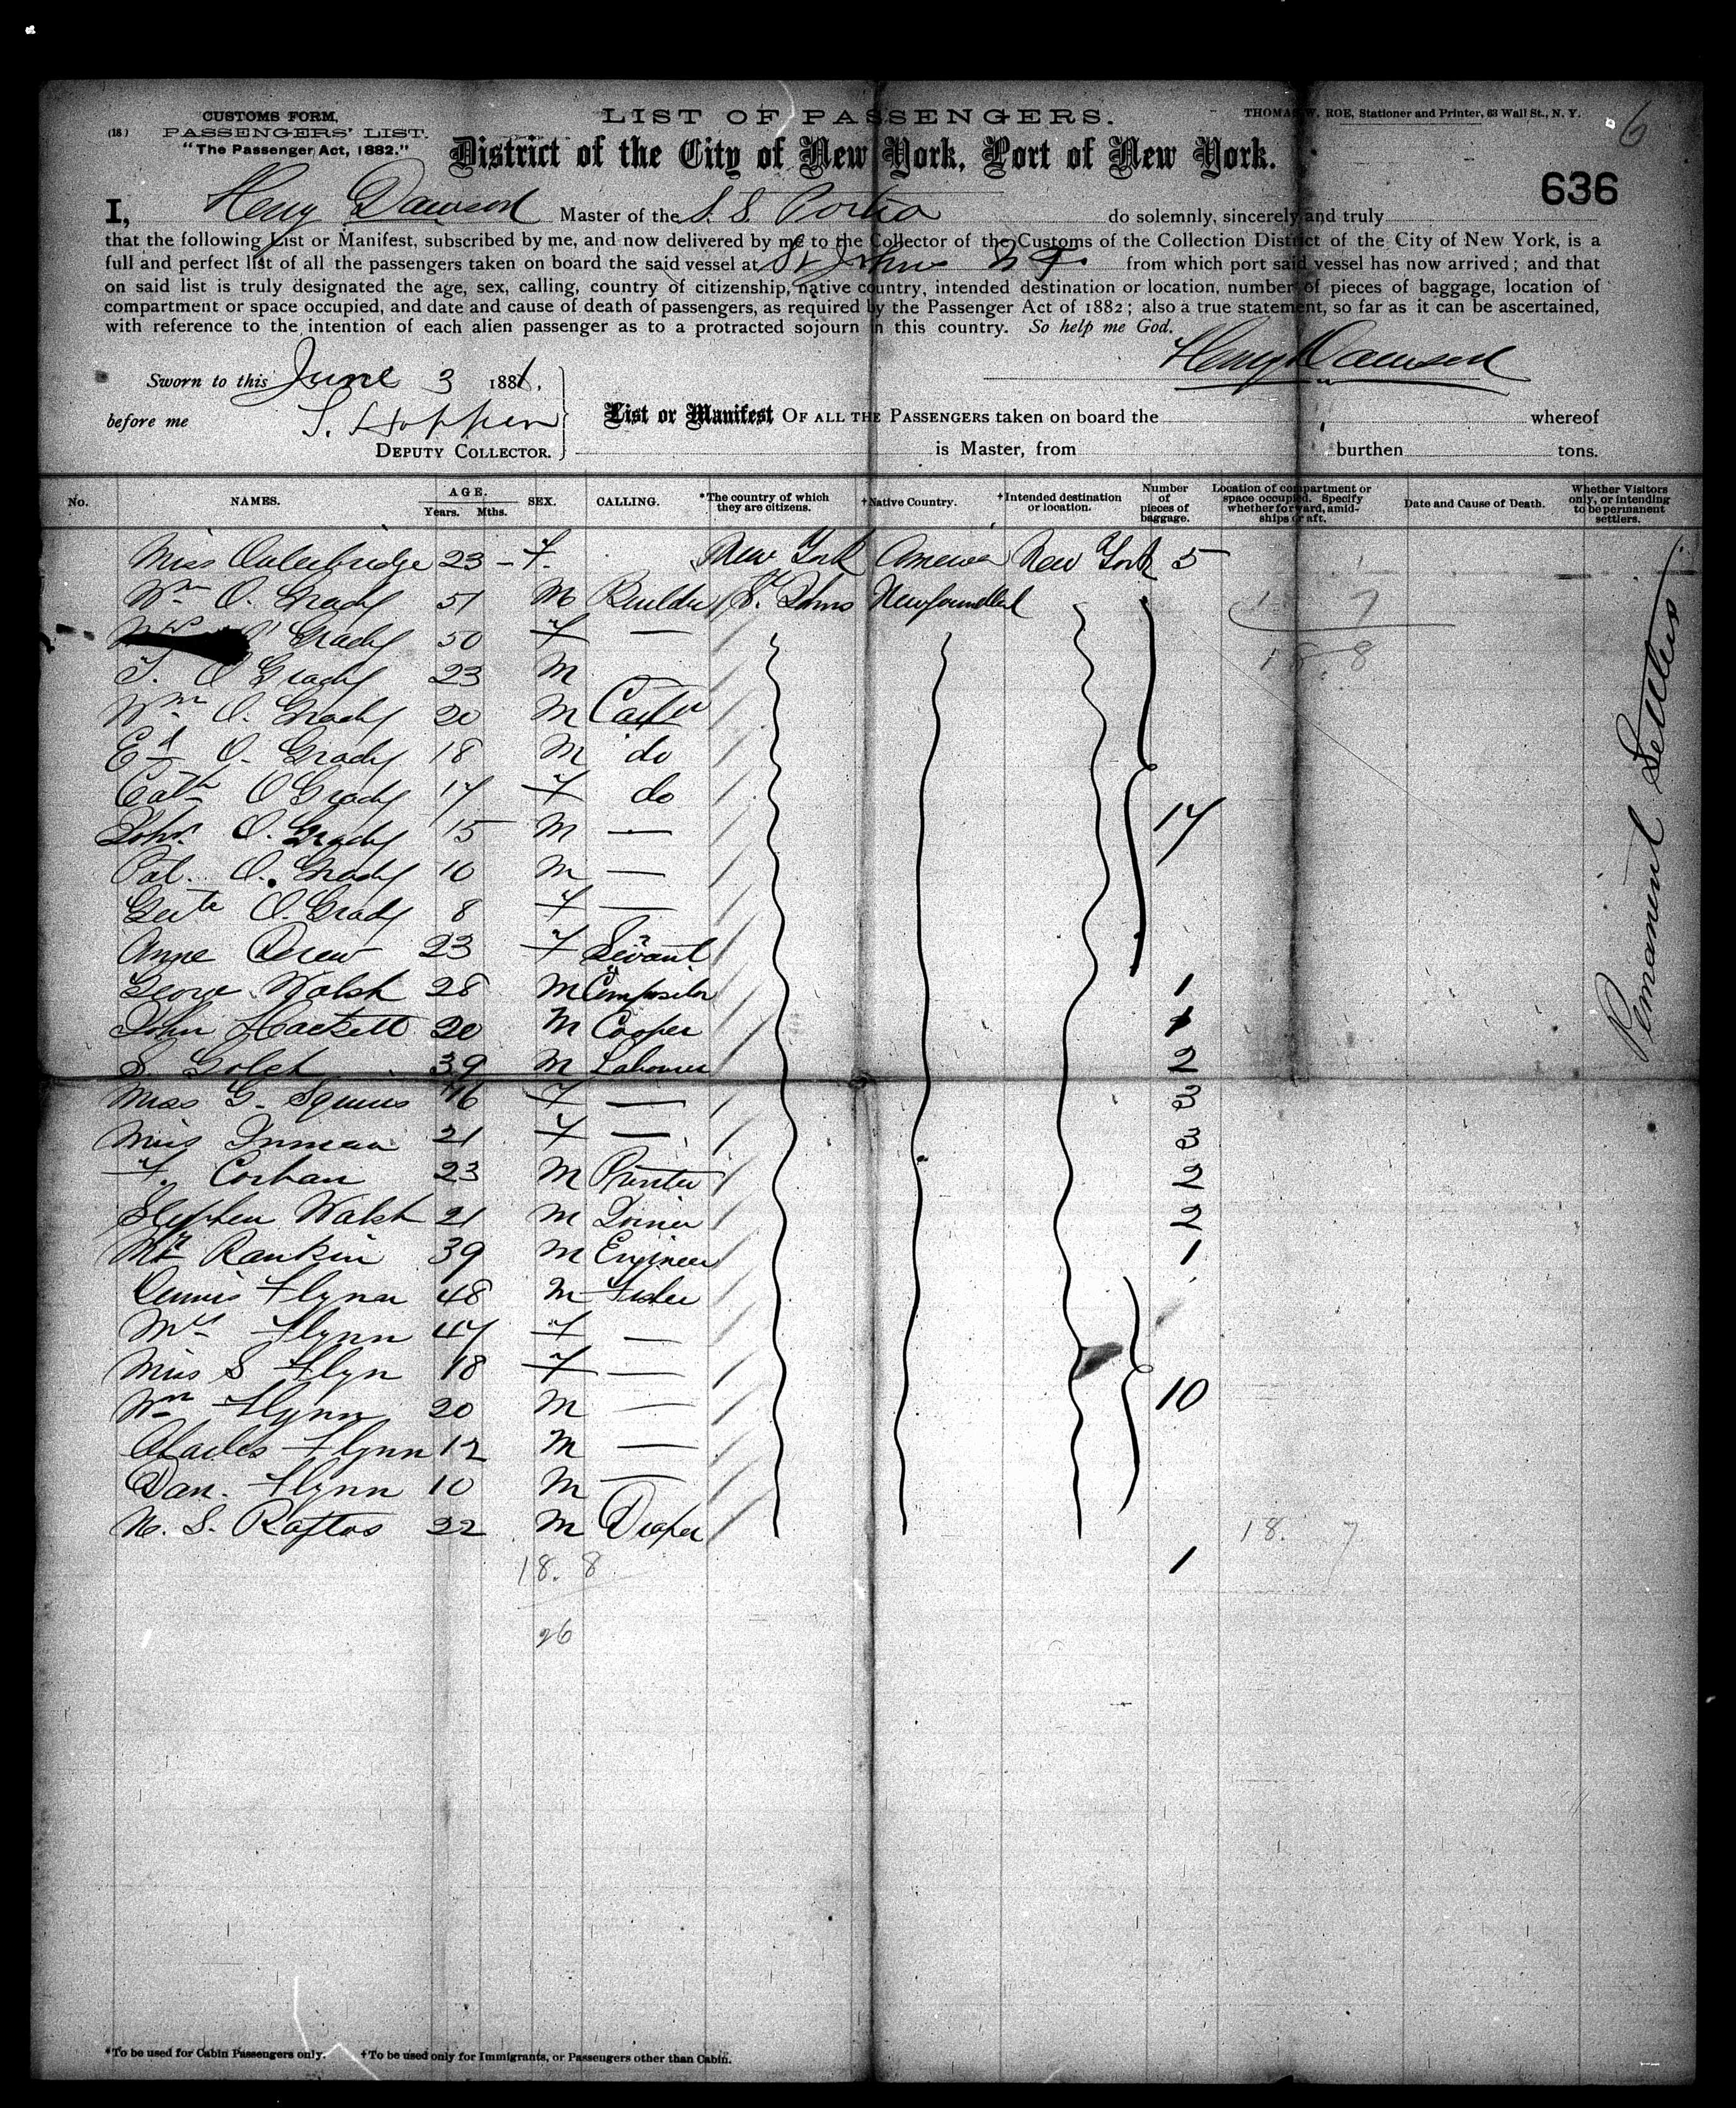 CUSTOMS FORM.
(18) PASSENGERS' LIST.
"The Passenger Act, 1882."
LIST OF PASSENGERS.
THOMAS W. ROE, Stationer and Printer, 63 Wall St., N. Y.
6
District of the City of New York, Port of New York.
636
I, Henry Dawson Master of the S. S. Portia do solemnly, sincerely and truly
that the following List or Manifest, subscribed by me, and now delivered by me to the Collector of the Customs of the Collection District of the City of New York, is a
full and perfect list of all the passengers taken on board the said vessel at St Johns N F. from which port said vessel has now arrived; and that
on said list is truly designated the age, sex, calling, country of citizenship, native country, intended destination or location, number of pieces of baggage, location of
compartment or space occupied, and date and cause of death of passengers, as required by the Passenger Act of 1882; also a true statement, so far as it can be ascertained,
with reference to the intention of each alien passenger as to a protracted sojourn in this country. So help me God.
Henry Dawson
Sworn to this June 3 188
before me S. Hoppen
DEPUTY COLLECTOR.
List or Manifest OF ALL THE PASSENGERS taken on board the whereof
is Master, from burthen tons.
No. NAMES. AGE. Years. Mths. SEX. CALLING. *The country of which they are citizens. †Native Country. †Intended destination or location. Number of pieces of baggage. Location of compartment or space occupied. Specify whether forward, amidships or aft. Date and Cause of Death. Whether Visitors only, or intending to be permanent settlers.
Miss Outerbridge 23 - F. New York America New York 5
Wm O. Grady 51 M Builder St. Johns Newfoundland
Mrs O' Grady 50 F —
T. O Grady 23 M
Wm O. Grady 20 M
Ed O. Grady 18 M do
Cath O Grady 17 F do
John O. Grady 15 M — 17
Pat. O. Grady 10 M —
Gert O. Grady 8 F —
Anne Drew 23 F Servant
George Walsh 28 M Compositor 1
John Hackett 20 M Cooper 1
S 39 M Labourer 2
Miss G. Squires 16 F — 2
Miss Inman 21 F — 2
F. Corban 23 M Printer 2
Stephen Walsh 21 M Joiner 2
Mr Rankin 39 M Engineer 1
Dennis Flynn 48 M Fisher
Mrs Flynn 47 F —
Miss S Flyn 18 F —
Wm Flynn 20 M — 10
Charles Flynn 12 M —
Dan. Flynn 10 M —
N. S. Raftus 22 M Draper 1
Permanent Settlers
1 7
18. 8
18. 7
18. 8
26
*To be used for Cabin Passengers only. †To be used only for Immigrants, or Passengers other than Cabin.